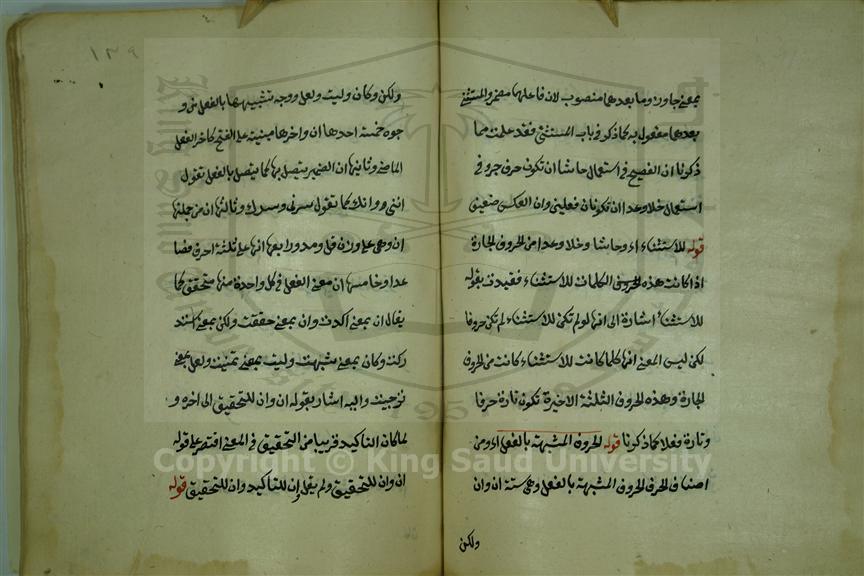 بمعنى جاوز وما بعدهما منصوب لان فاعلها مضمر والمستثنى
بعدهما مفعول به كما ذكر في باب المستثنى فقد علمت مما
ذكرنا ان الفصيح في استعمال حاشا ان تكون حرف جر وفي
استعمال خلا وعدا ان تكونان فعلين وان العكس ضعيف
قوله للاستثناء اه وحاشا وخلا وعدا من الحروف الجارة
اذا كانت هذه الحروف الكلمات للاستثناء فقيدت بقوله
للاستثناء اشارة الى انها لو لم تكن للاستثناء لم تكن حروفا
لكن ليس المعنى انها كلما كانت للاستثناء كانت من الحروف
الجارة وهذه الحروف الثلثة الاخيرة تكون تارة حرفا
وتارة فعلا كما ذكرنا قوله الحروف المشبهة بالفعل اه ومن
اصناف الحرف الحروف المشبهة بالفعل وهي ستة ان وان
ولكن
١٣٩
ولكن وكان وليت ولعل ووجه تشبيهها بالفعل من و
جوه خمسة احدها ان واخرها مبنية على الفتح كاخر الفعل
الماضي وثانيها ان الضمير يتصل بها كما يتصل بالفعل تقول
انني وانك كما تقول سرني وسرك وثالثها ان من جملتها
ان وهي على وزن فل ومد ورابعها انها على ثلثة احرف فصا
عدا وخامسها ان معنى الفعل في كل واحدة منها متحقق كما
يقال ان بمعنى اكدت وان بمعنى حققت ولكن بمعنى استد
ركت وكان بمعنى شبهت وليت بمعنى تمنيت ولعل بمعنى
ترجيت واليه اشار بقوله ان وان للتحقيق الى اخره و
لما كان التاكيد قريبا من التحقيق في المعنى اقتصر على قوله
ان وان للتحقيق ولم يقل ان للتاكيد وان للتحقيق قوله
Copyright © King Saud University